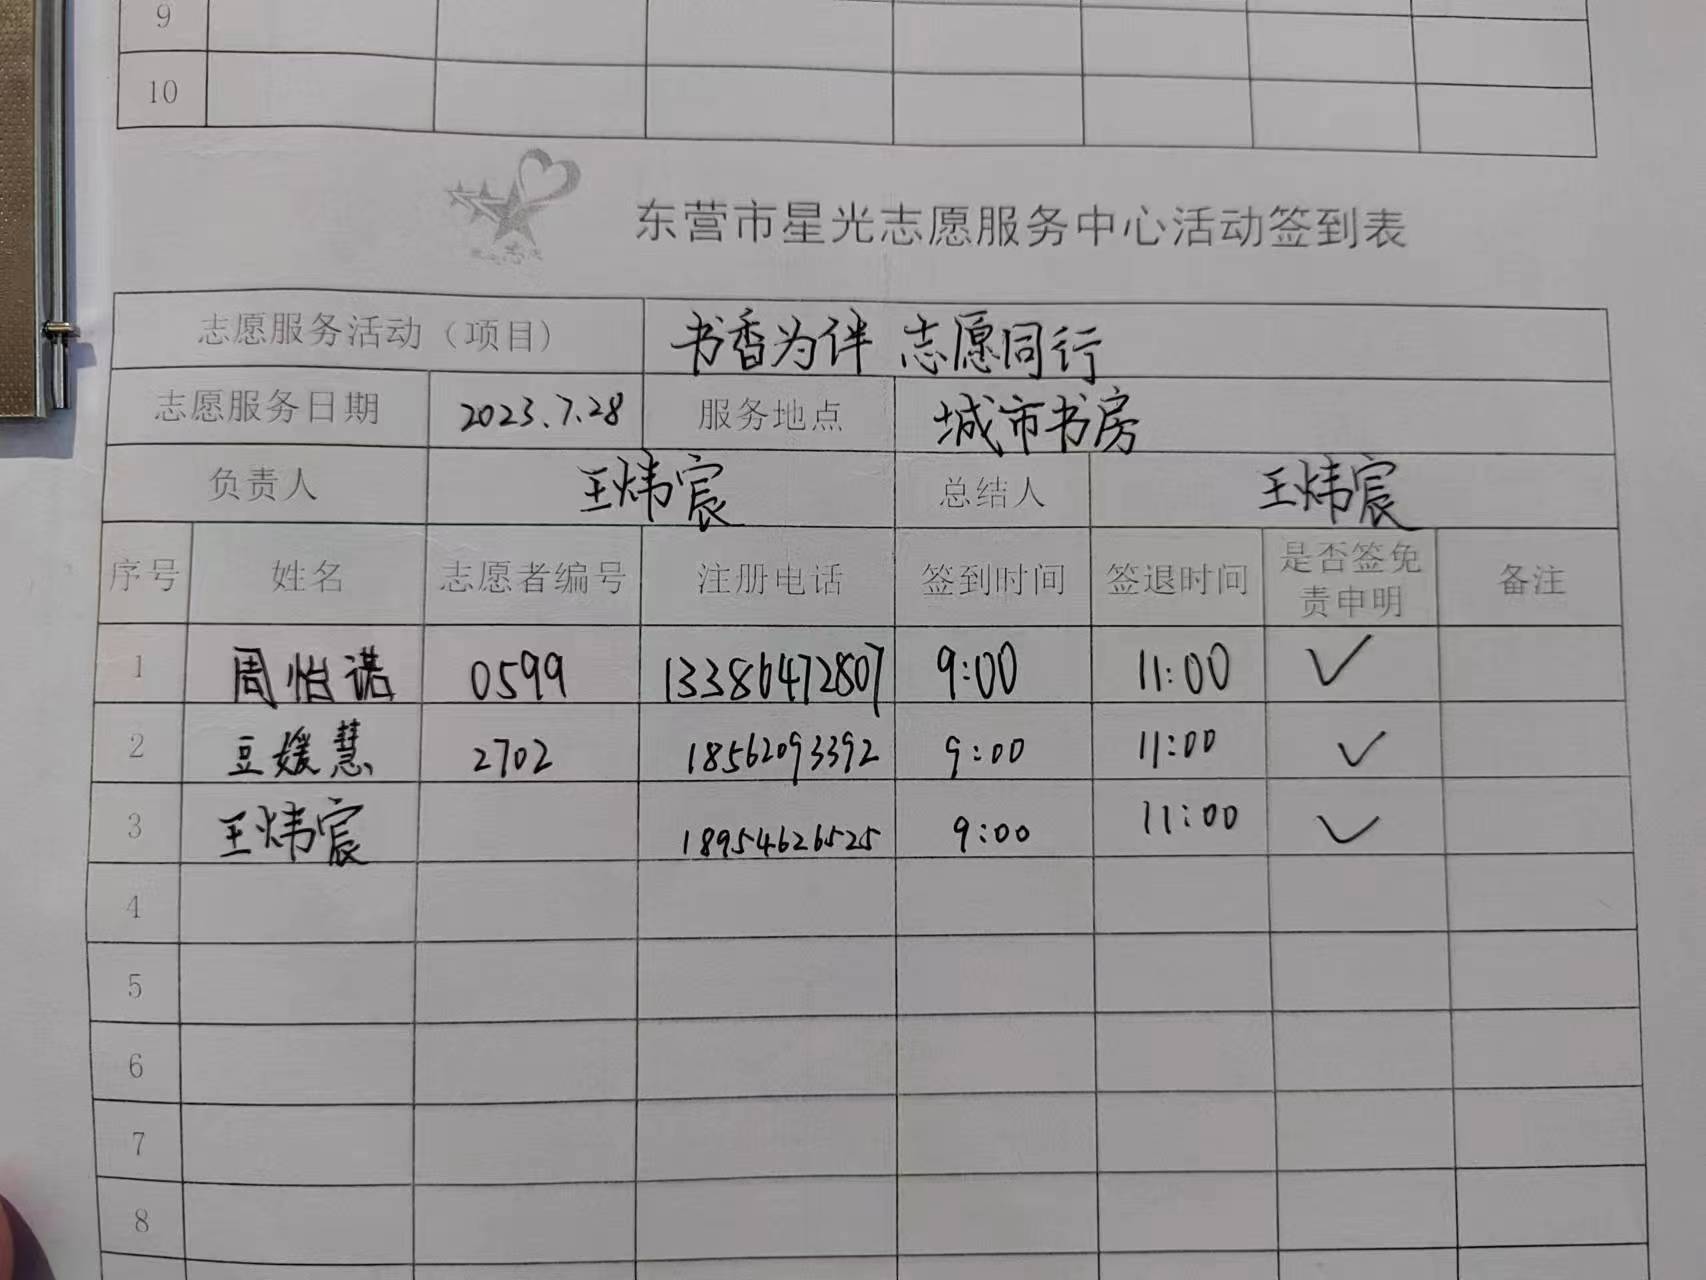 9
10
东营市星光志愿服务中心活动签到表
志愿服务活动（项目） 书香为伴 志愿同行
志愿服务日期 2023.7.28 服务地点 城市书房
负责人 王炜宸 总结人 王炜宸
序号 姓名 志愿者编号 注册电话 签到时间 签退时间 是否签免责申明 备注
1 周怡诺 0599 13386472807 9:00 11:00 ✓
2 豆媛慧 2702 18562093392 9:00 11:00 ✓
3 王炜宸 18954626525 9:00 11:00 ✓
4
5
6
7
8